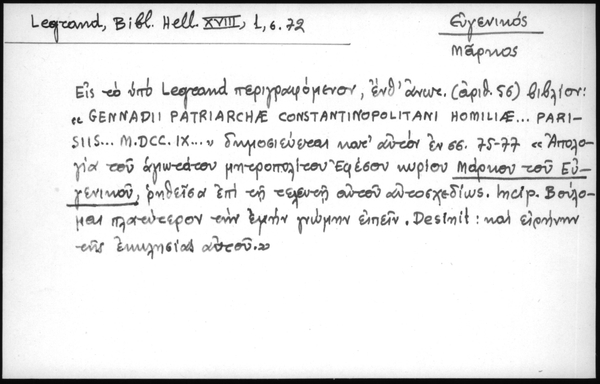 Legrand, Bibl. Hell. XVIII, 1, σ. 72
Εὐγενικός
Μᾶρκος
Εἰς τὸ ὑπὸ Legrand περιγραφόμενον, ἔνθ' ἄνωτ. (ἀριθ. 56) βιβλίον:
« GENNADII PATRIARCHÆ CONSTANTINOPOLITANI HOMILIÆ... PARI-
SIIS... M.DCC.IX...» δημοσιεύεται κατ' αὐτόν ἐν σσ. 75-77 « Ἀπολο-
γία τοῦ ἁγιωτάτου μητροπολίτου Ἐφέσου κυρίου Μάρκου τοῦ Εὐ-
γενικοῦ, ῥηθεῖσα ἐπὶ τῇ τελευτῇ αὐτοῦ αὐτοσχεδίως. Incip. Βούλο-
μαι πλατύτερον τὴν ἐμὴν γνώμην εἰπεῖν. Desinit: καὶ εἰρήνην
τῆς ἐκκλησίας αὐτοῦ.»